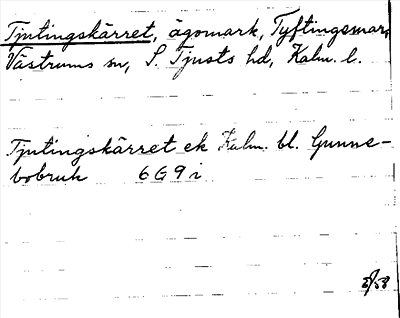 Tjutingskärret, ägomark, Tyftingsmar,
Västrums sn, S. Tjusts hd, Kalm. l.
Tjutingskärret ek Kalm. bl. Gunne-
bobruk 6G9i